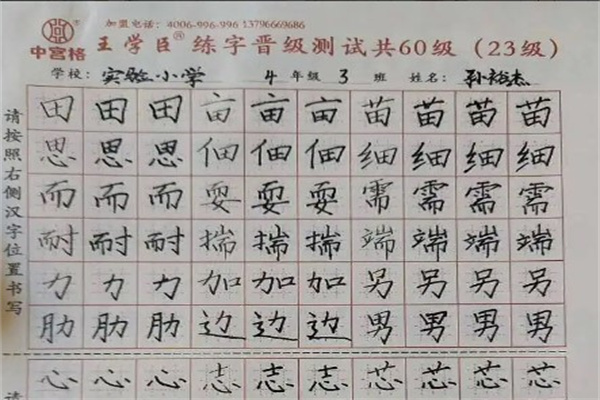 加盟电话：4006-996-996 13796669686
中宫格 王学臣® 练字晋级测试共60级（23级）
学校：实验小学 4年级 3班 姓名：孙裕杰
请按照右侧汉字位置书写
田田田亩亩亩苗苗苗苗
思思思佃佃佃细细细细
而而而耍耍耍需需需需
耐耐耐揣揣揣端端端端
力力力加加加另另另另
肋肋肋边边边男男男男
心心心志志志芯芯芯芯
请